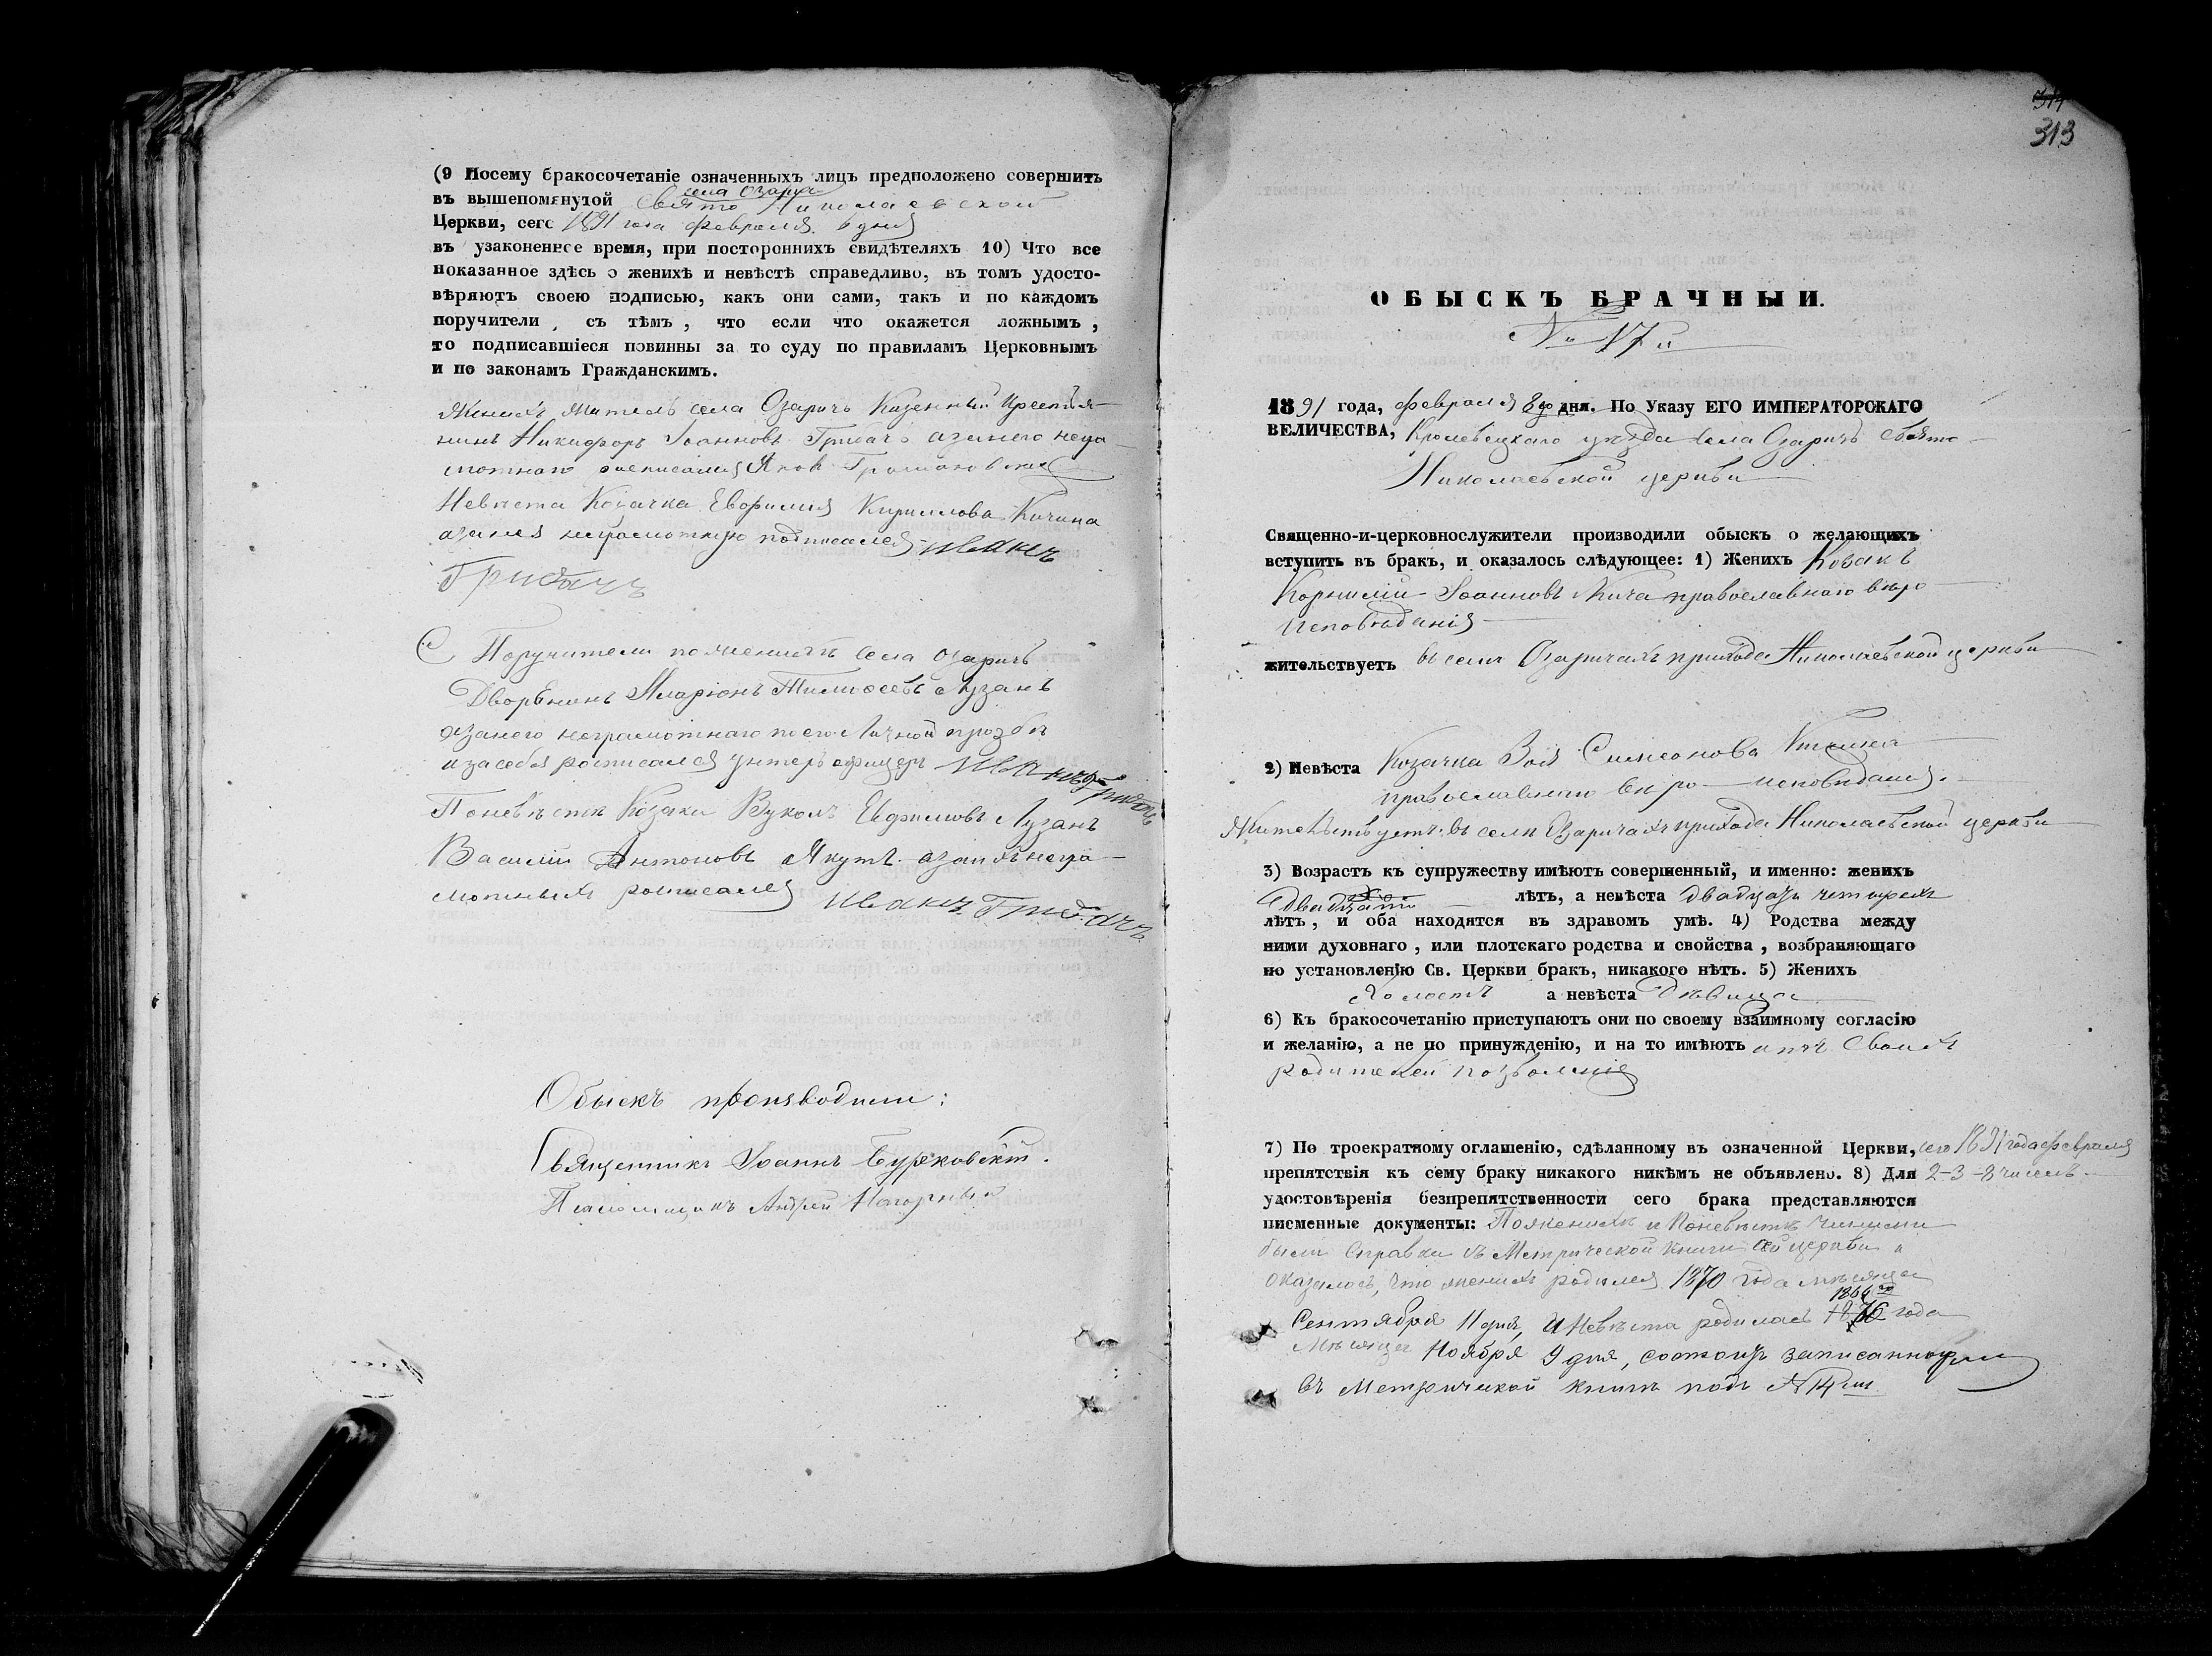 (9 Посему бракосочетаніе означенныхъ лицъ предположено совершить
села Озаричъ
въ вышепомянутой Свято Николаевской
Церкви, сего 1891 года февраля 6 дня
въ узаконенное время, при постороннихъ свидѣтеляхъ 10) Что все
показанное здѣсь о женихѣ и невѣстѣ справедливо, въ томъ удосто-
вѣряютъ своею подписью, какъ они сами, такъ и по каждомъ
поручители, съ тѣмъ, что если что окажется ложнымъ,
то подписавшіеся повинны за то суду по правиламъ Церковнымъ
и по законамъ Гражданскимъ.
Женихъ житель села Озаричъ Казенный Крестья-
нинъ Никифоръ Іоанновъ Грибачъ азанего негра-
мотнаго росписался Яков
Невѣста Козачка Евфимия Кирилова Кичина
азанея неграмотную подписался Иванъ
Грибачъ
Поручители по женихѣ села Озаричъ
Дворенинъ Иларіонъ Тимофеевъ Лузанъ
азанего неграмотнаго по его личной прозбѣ
изасебя росписался унтеръ офицеръ Иванъ Грибачъ
Поневѣстѣ Козаки Вукомъ Ефимовъ Лузанъ
Василій Антоновъ Якутъ азанихъ негра-
мотныхъ росписался Иванъ Грибачъ
Обыскъ производили:
Священникъ Іоаннъ Бурковскій.
Псаломщикъ Андрей Нагорный
314
313
ОБЫСКЪ БРАЧНЫЙ.
№ 17й
1891 года, февраля 8го дня. По Указу ЕГО ИМПЕРАТОРСКАГО
ВЕЛИЧЕСТВА, Кролевецкаго уѣзда села Озаричъ Свято-
Николаевской церкви
Священно-и-церковнослужители производили обыскъ о желающихъ
вступить въ бракъ, и оказалось слѣдующее: 1) Женихъ Козакъ
Корнилій Іоанновъ Кича православнаго вѣро
исповѣданія
жительствуетъ въ селѣ Озаричахъ прихода Николаевской церкви
2) Невѣста Козачка Зоя Симеонова
православнаго вѣро-исповѣданія.
Жительствуетъ въ селѣ Озаричахъ прихода Николаевской церкви
3) Возрастъ къ супружеству имѣютъ совершенный, и именно: женихъ
двадцати лѣтъ, а невѣста двадцать четырехъ
лѣтъ, и оба находятся въ здравомъ умѣ. 4) Родства между
ними духовнаго, или плотскаго родства и свойства, возбраняющаго
по установленію Св. Церкви бракъ, никакого нѣтъ. 5) Женихъ
Холостъ а невѣста Дѣвица
6) Къ бракосочетанію приступаютъ они по своему взаимному согласію
и желанію, а не по принужденію, и на то имѣютъ отъ своихъ
родителей позволеніе
7) По троекратному оглашенію, сдѣланному въ означенной Церкви, сего 1891 года февраля
препятствія къ сему браку никакого никѣмъ не объявлено. 8) Для 2-3-8 чиселъ
удостовѣренія безпрепятственности сего брака представляются
писменные документы: По женихѣ и поневѣстѣ чинимы
были справки въ Метрической книги сей церкви и
оказалось, что женихъ родился 1870 года мѣсяца
1866го
Сентября 11 дня, а Невѣста родилась 1870 года
Мѣсяца Ноября 9 дня, состоитъ записанною
въ Метрической книгѣ подъ № 14мъ